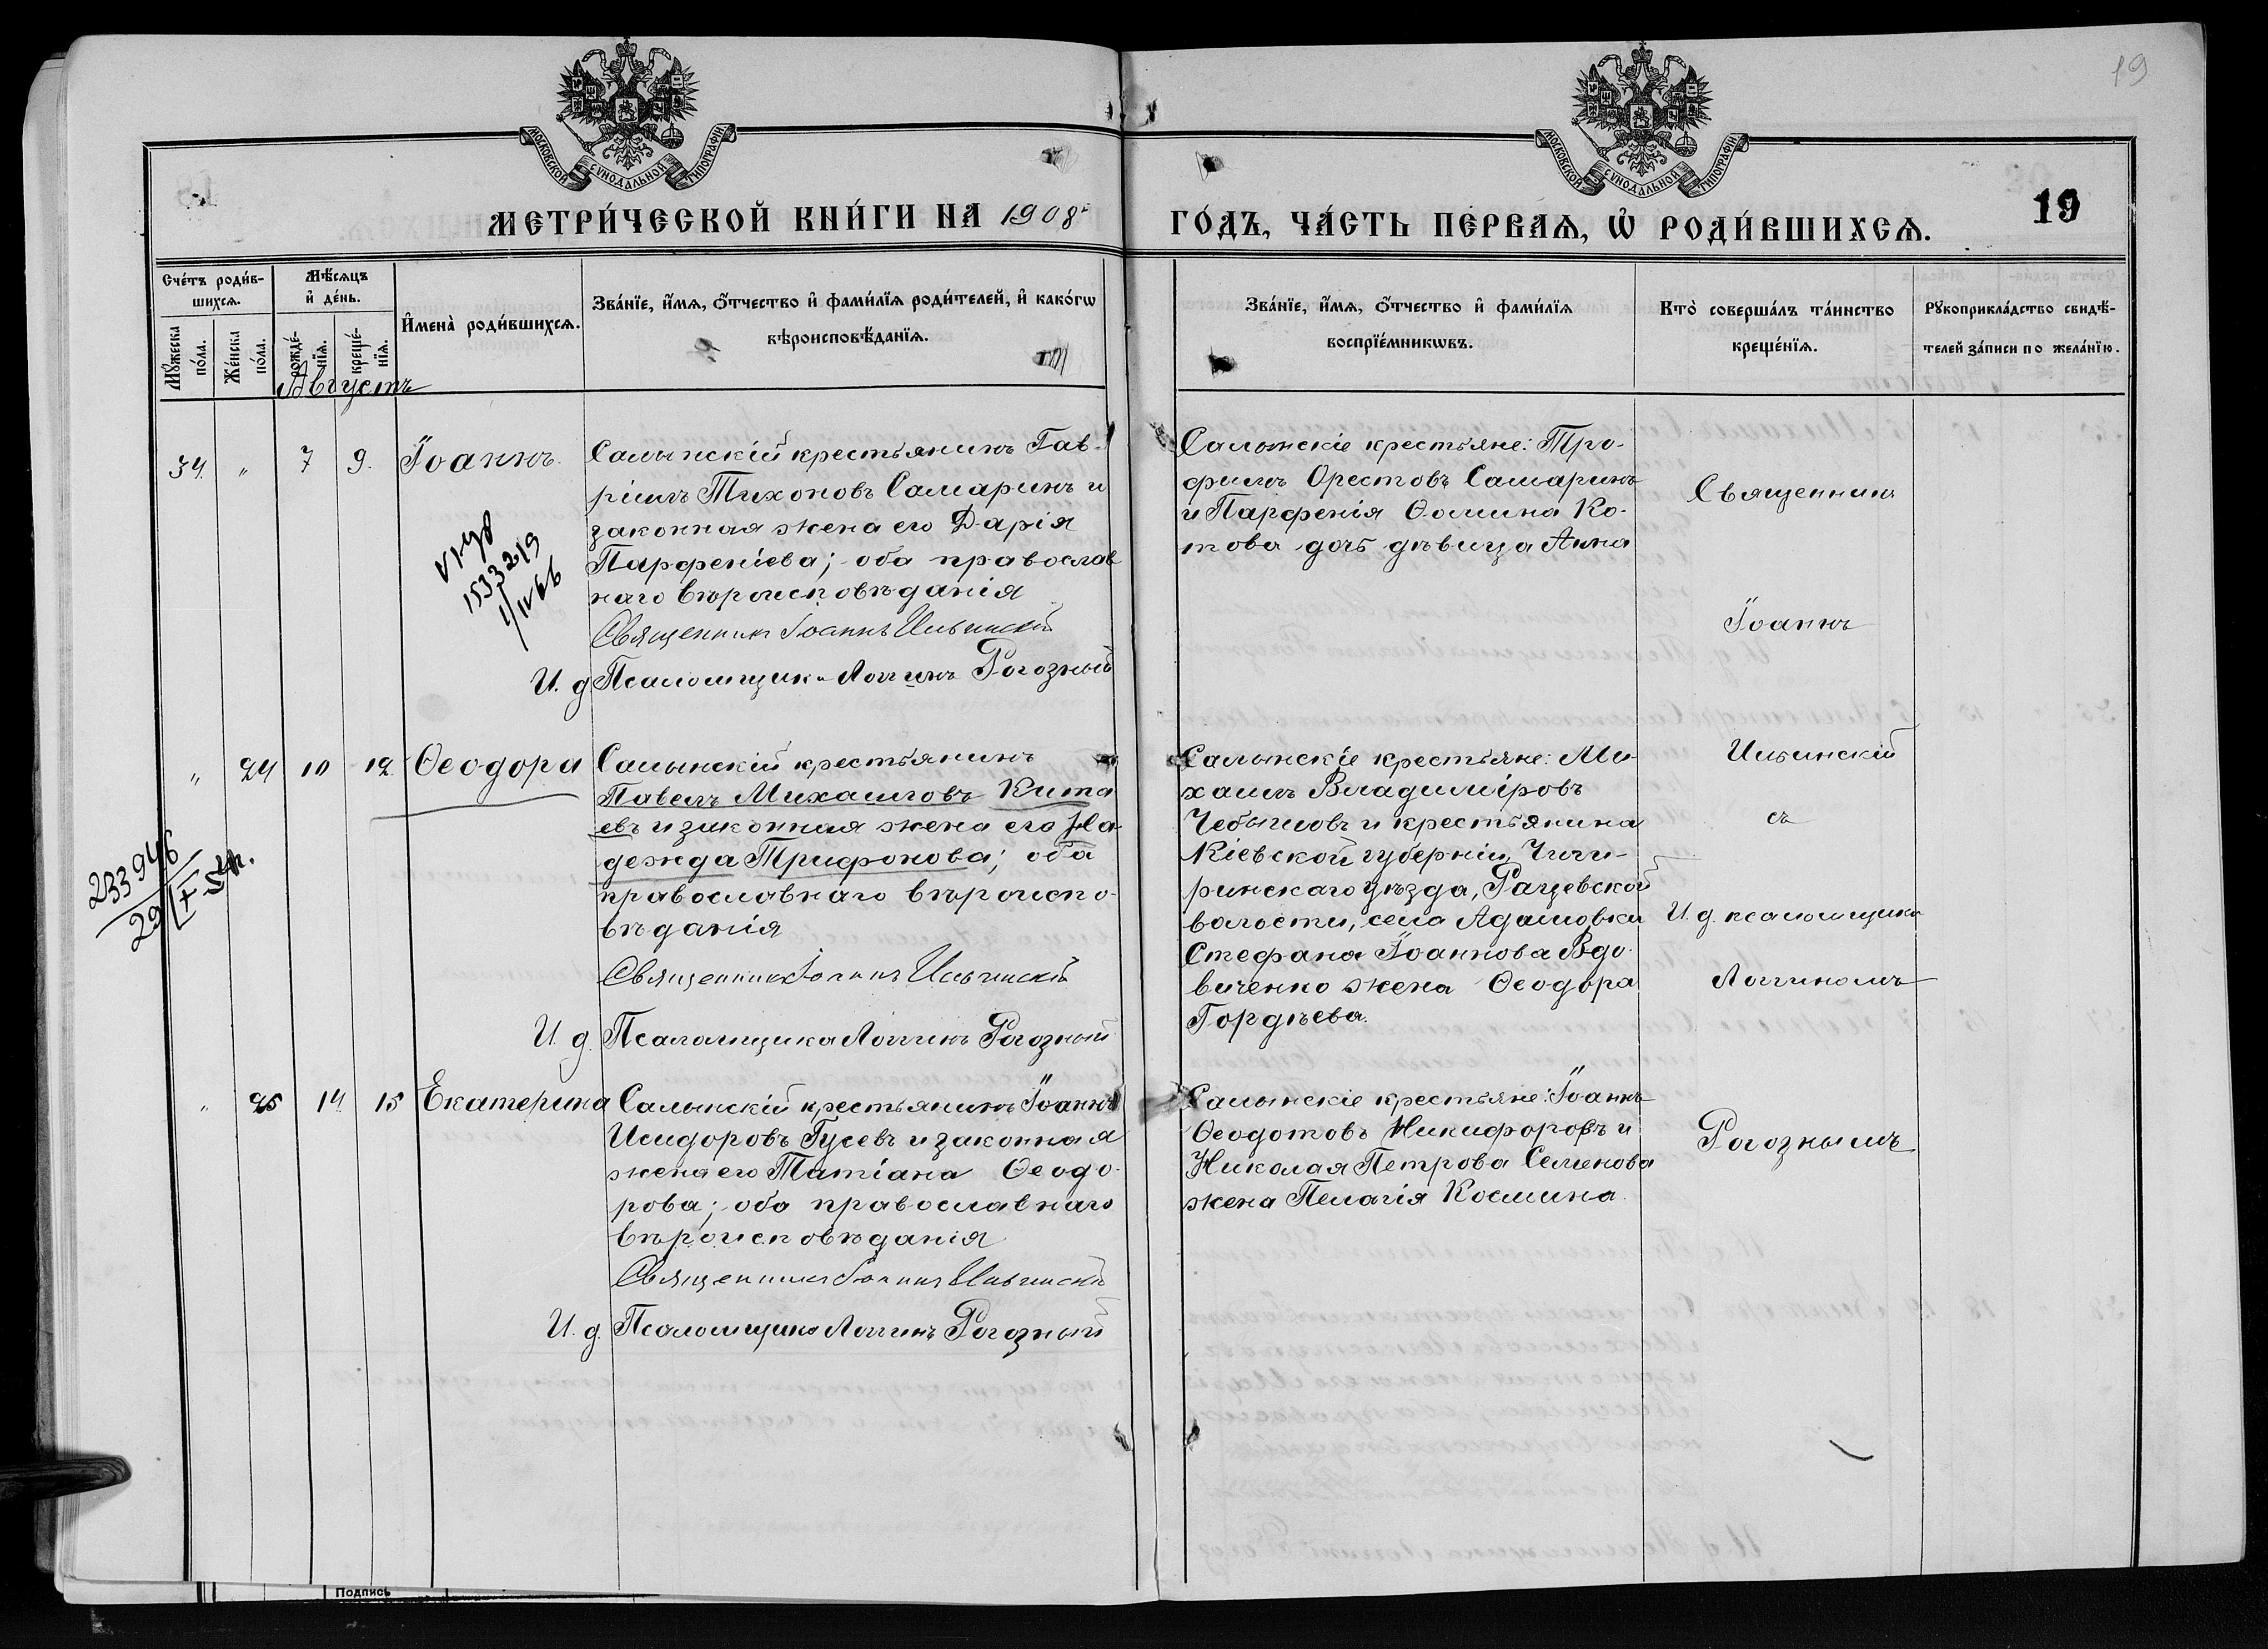 19
МОСКОВСКОЙ СУНОДАЛЬНОЙ ТИПОГРАФІИ
МОСКОВСКОЙ СУНОДАЛЬНОЙ ТИПОГРАФІИ
МЕТРИ́ЧЕСКОЙ КНИ́ГИ НА 1908
ГО́ДЪ, ЧА́СТЬ ПЕ́РВАѦ, Ѡ҆ РОДИ́ВШИХСѦ.
19
Сче́тъ роди́в-
шихсѧ.
Мꙋ́жеска
по́ла.
Же́нска
по́ла.
Мѣ́сѧцъ
и҆ де́нь.
рожде́-
нїѧ.
креще́-
нїѧ.
И҆мена̀ роди́вшихсѧ.
Зва́нїе, и҆́мѧ, ѻ҆́тчество и҆ фами́лїѧ роди́телей, и҆ како́гѡ
вѣроисповѣ́данїѧ.
Зва́нїе, и҆́мѧ, ѻ҆́тчество и҆ фами́лїѧ
воспрїе́мникѡвъ.
Кто̀ соверша́лъ та́инство
креще́нїѧ.
Рꙋкоприкла́дство свидѣ́-
телей за́писи по жела́нїю.
Августъ
34. " 7 9. Іоаннъ.
Салынскій крестьянинъ Гав-
ріилъ Тихоновъ Самаринъ и
законная жена его Дарія
Парфеніева; оба православ
наго вѣроисповѣданія
Священникъ Іоаннъ Ильинскій
И. д. Псаломщика Логгинъ Рогозный
1533219
Салынскіе крестьяне: Тро-
фимъ Орестовъ Самаринъ
и Парфенія Ѳомина Ко-
това дочь дѣвица Анна
Священникъ
Іоаннъ
" 24 10 12 Ѳеодора
Салынскій крестьянинъ
Павелъ Михаиловъ Кита
евъ и законная жена его На-
дежда Трифонова; оба
православнаго вѣроиспо-
вѣданія
Священникъ Іоаннъ Ильинскій
И. д. Псаломщика Логгинъ Рогозный
233946
Салынскіе крестьяне: Ми-
хаилъ Владиміровъ
Чебышовъ и крестьянина
Кіевской губерніи, Чиги-
ринскаго уѣзда, Рацевской
волости, села Адамовки
Стефана Іоаннова Вдо-
виченко жена Ѳеодора
Гордѣева.
Ильинскій
съ
И. д. псаломщика
Логгиномъ
" 25 14 15 Екатерина
Салынскій крестьянинъ Іоаннъ
Исидоровъ Гусевъ и законная
жена его Татіана Ѳеодо-
рова; оба православнаго
вѣроисповѣданія
Священникъ Іоаннъ Ильинскій
И. д. Псаломщика Логгинъ Рогозный
Салынскіе крестьяне: Іоаннъ
Ѳеодотовъ Никифоровъ и
Николая Петрова Семенова
жена Пелагія Космина.
Рогознымъ
Подпись